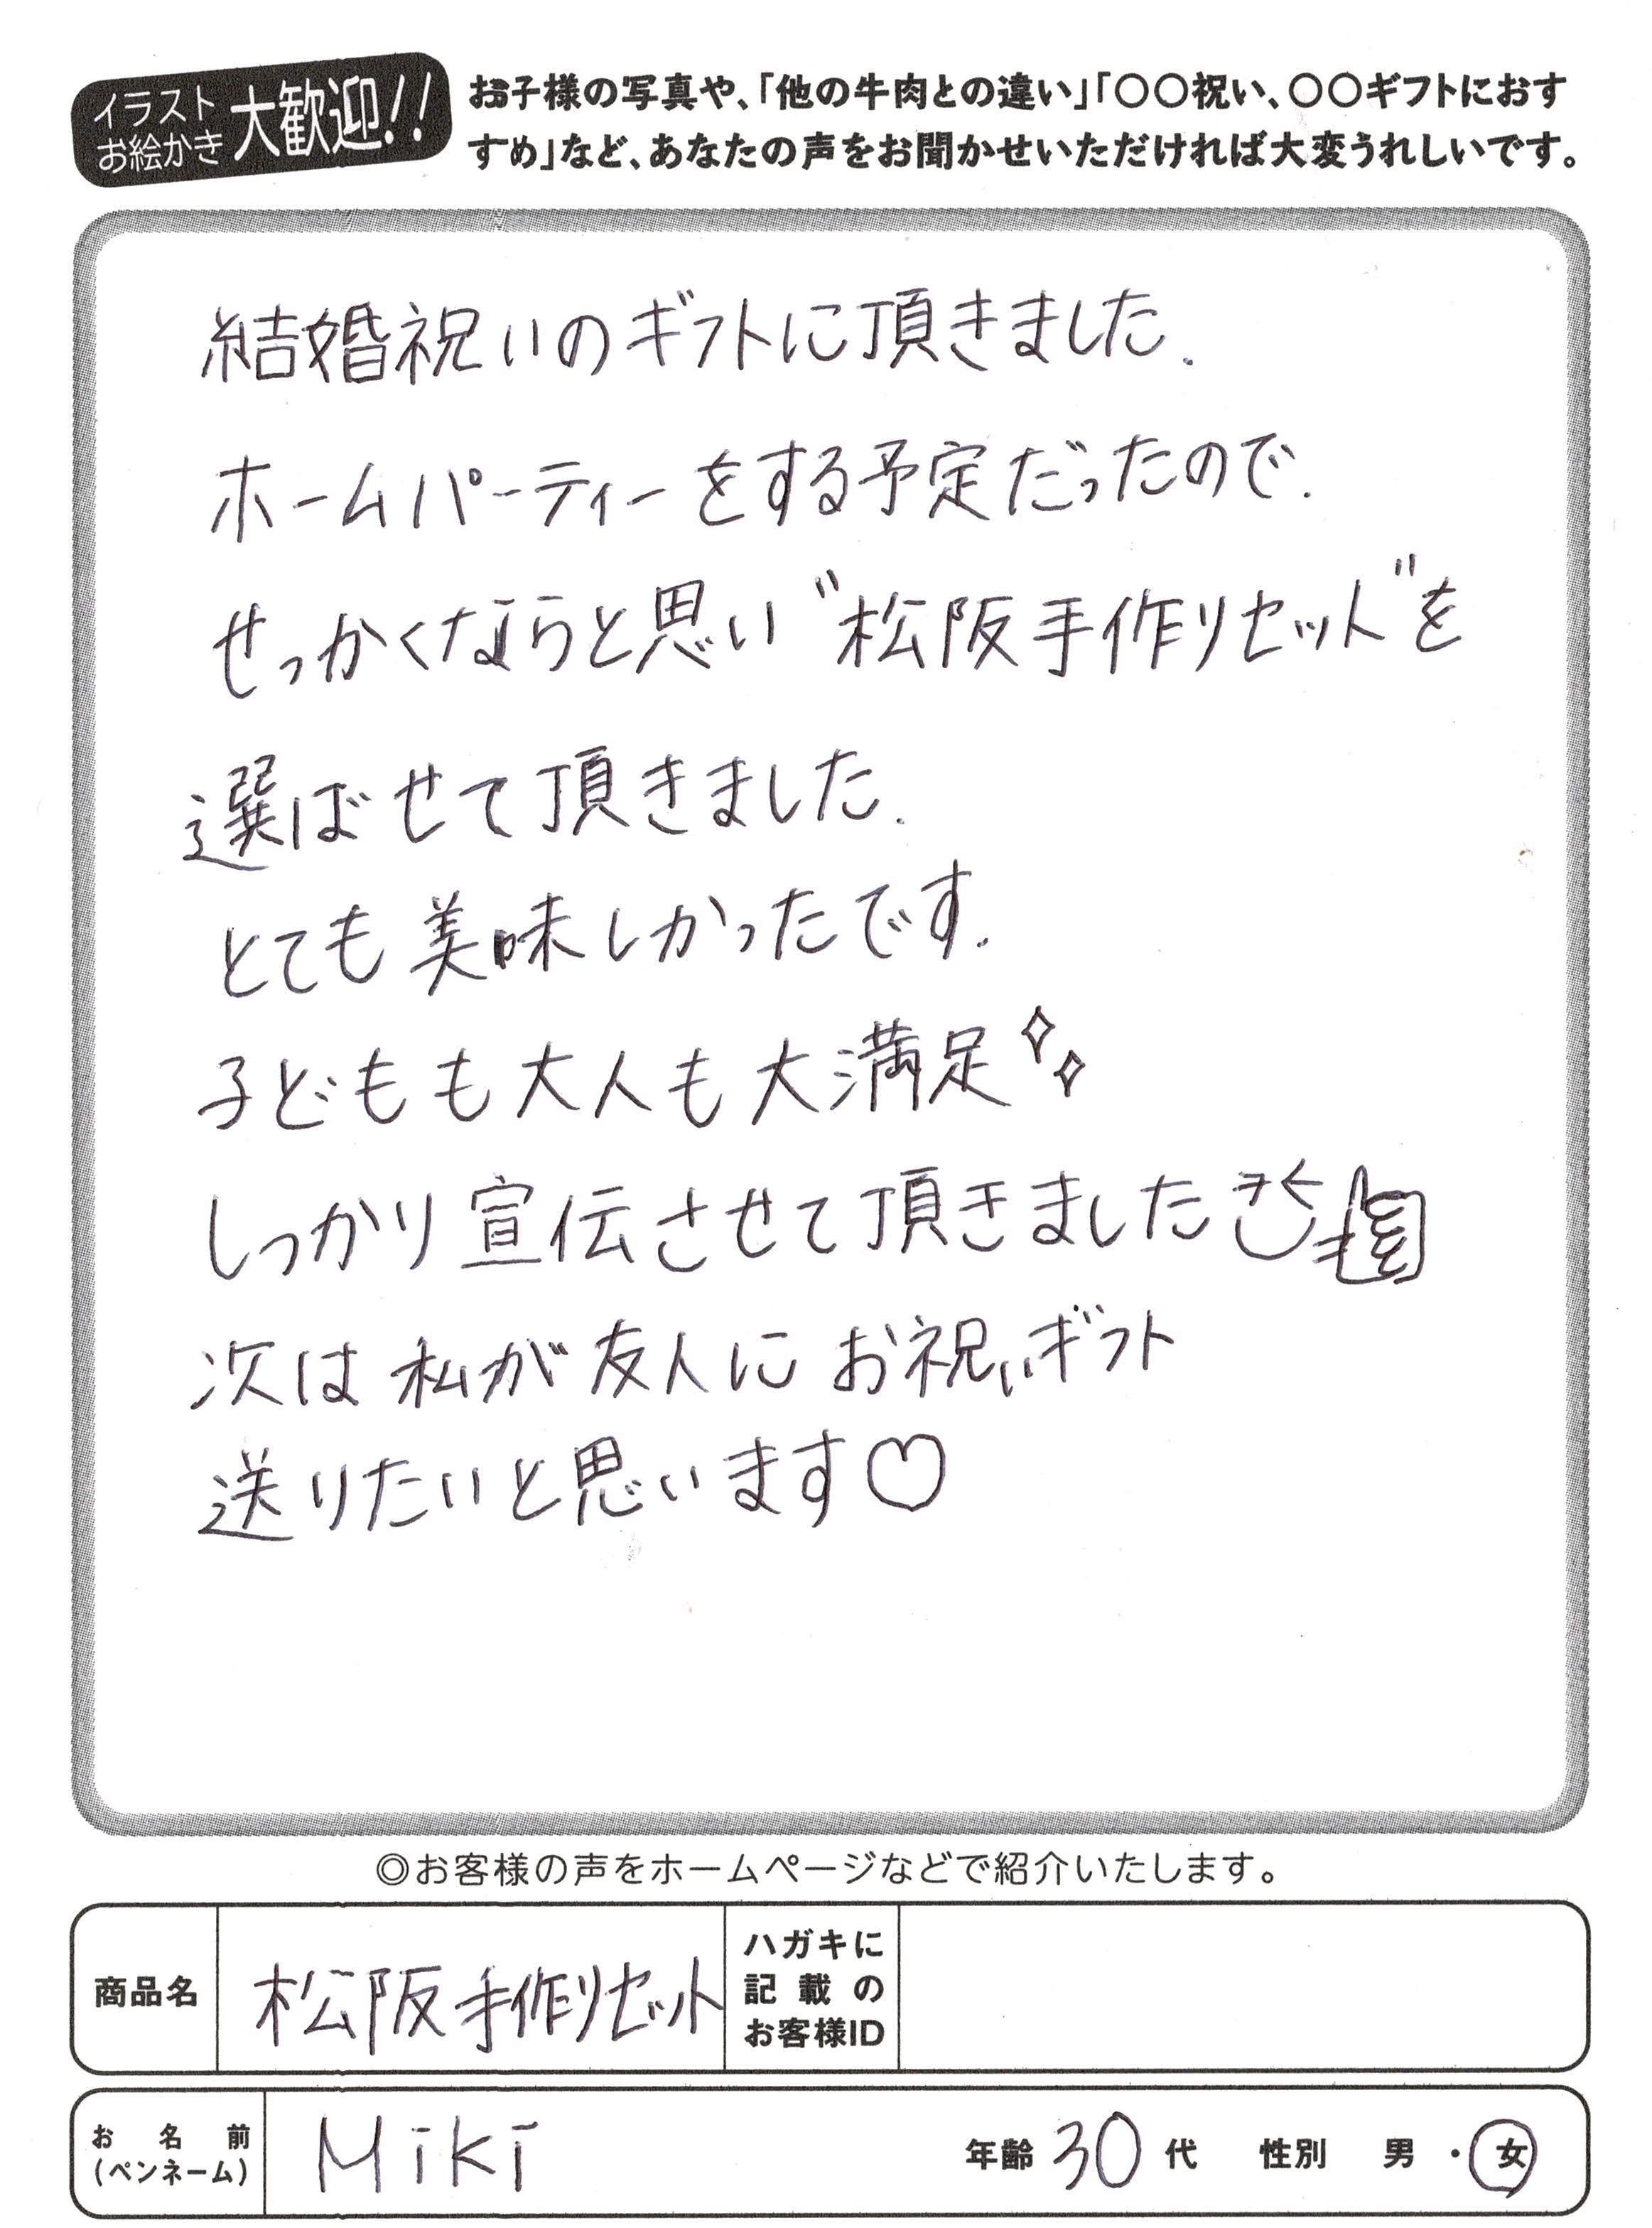 イラスト
お絵かき
大歓迎!!
お子様の写真や、「他の牛肉との違い」「〇〇祝い、〇〇ギフトにおす
すめ」など、あなたの声をお聞かせいただければ大変うれしいです。
結婚祝いのギフトに頂きました.
ホームパーティーをする予定だったので.
せっかくならと思い"松阪手作りセット"を
選ばせて頂きました.
とても美味しかったです.
子どもも大人も大満足
しっかり宣伝させて頂きました
次は私が友人にお祝いギフト
送りたいと思います♡
◎お客様の声をホームページなどで紹介いたします。
商品名
松阪手作りセット
ハガキに
記載の
お客様ID
お名前
(ペンネーム)
Miki
年齢 30代 性別 男・女